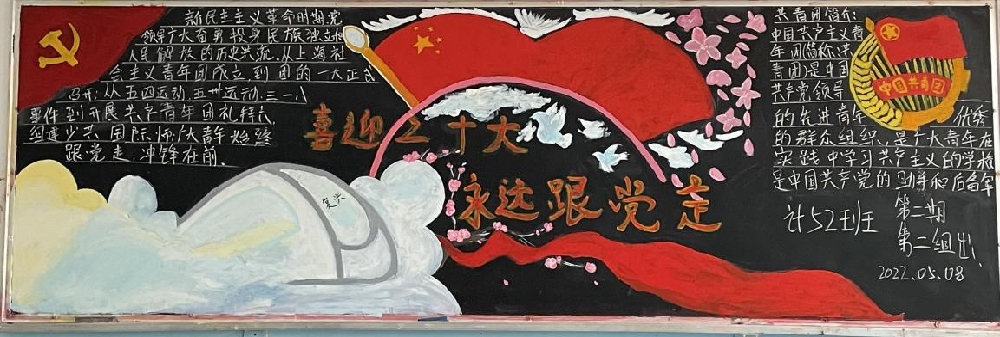 新民主主义革命时期党
领导广大青年投身民族独立和
人民解放的历史洪流，从上海社
会主义青年团成立，到团的一大正式
召开；从五四运动，五卅运动，三一八
事件到开展共产青年团礼拜六，
组建少共国际师，广大青年始终
跟党走，冲锋在前。
喜迎二十大
永远跟党走
复兴
共青团简介：
中国共产主义青
年团简称
青团是中国
共产党领导
的先进青年 优秀
的群众组织，是广大青年在
实践中学习共产主义的学校
是中国共产党的 和后备军
中国共青团
计52班
第二期
第二组出
2022.05.08